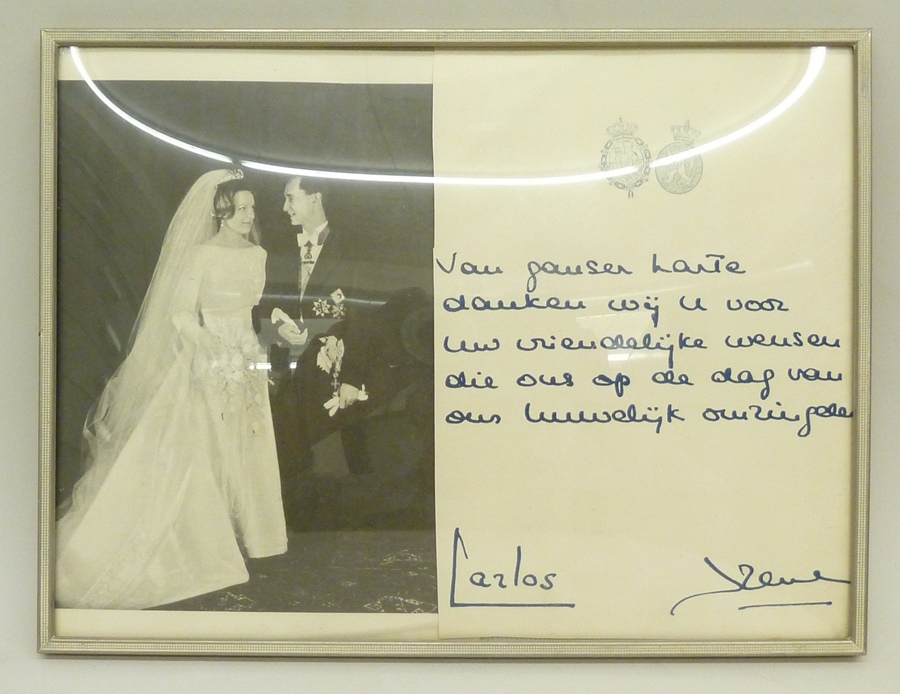 Van ganser harte
danken wij U voor
Uw vriendelijke wensen
die ons op de dag van
ons huwelijk omringden
Carlos
Irene